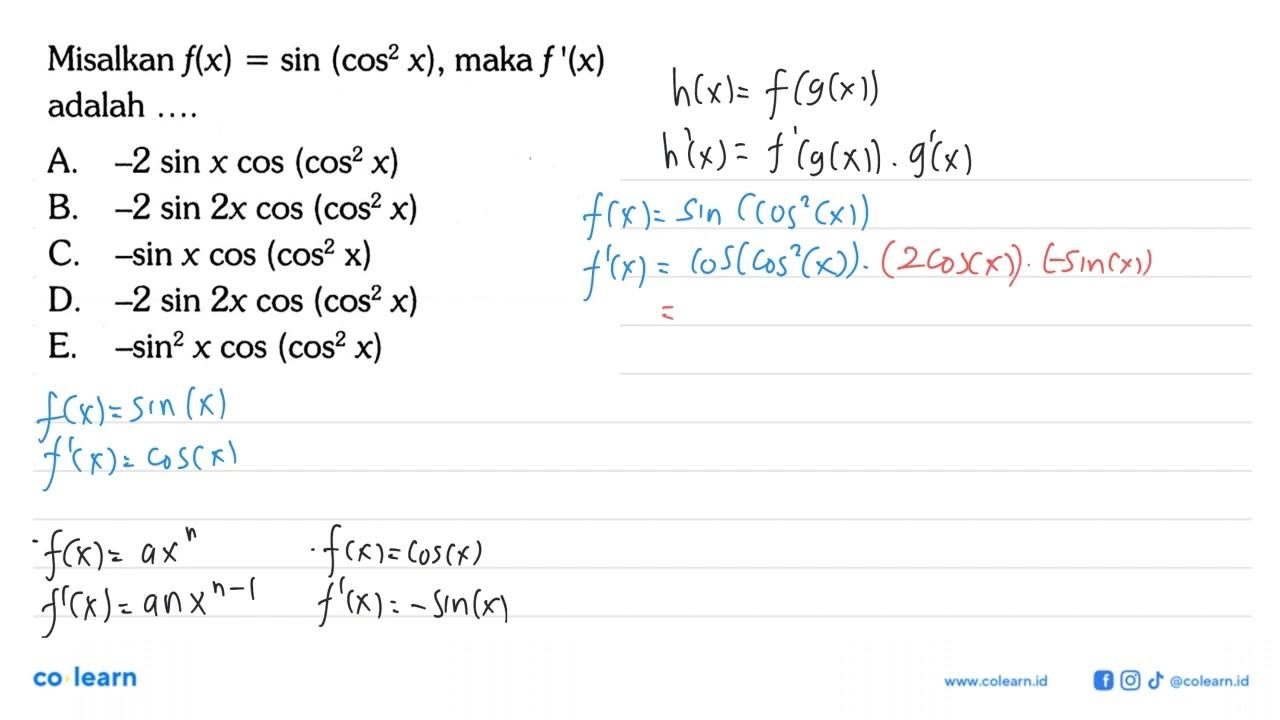 Misalkan f(x) = sin (cos² x), maka f '(x)
adalah ....
A. –2 sin x cos (cos² x)
B. –2 sin 2x cos (cos² x)
C. –sin x cos (cos² x)
D. –2 sin 2x cos (cos² x)
E. –sin² x cos (cos² x)
h(x) = f(g(x))
h'(x) = f'(g(x)) . g'(x)
f(x) = sin (cos²(x))
f'(x) = cos(cos²(x)). (2cos(x)). (-sin(x))
=
f(x) = sin(x)
f'(x) = cos(x)
. f(x) = ax^n
f'(x) = anx^{n-1}
. f(x) = cos(x)
f'(x) = -sin(x)
co learn
www.colearn.id
@colearn.id